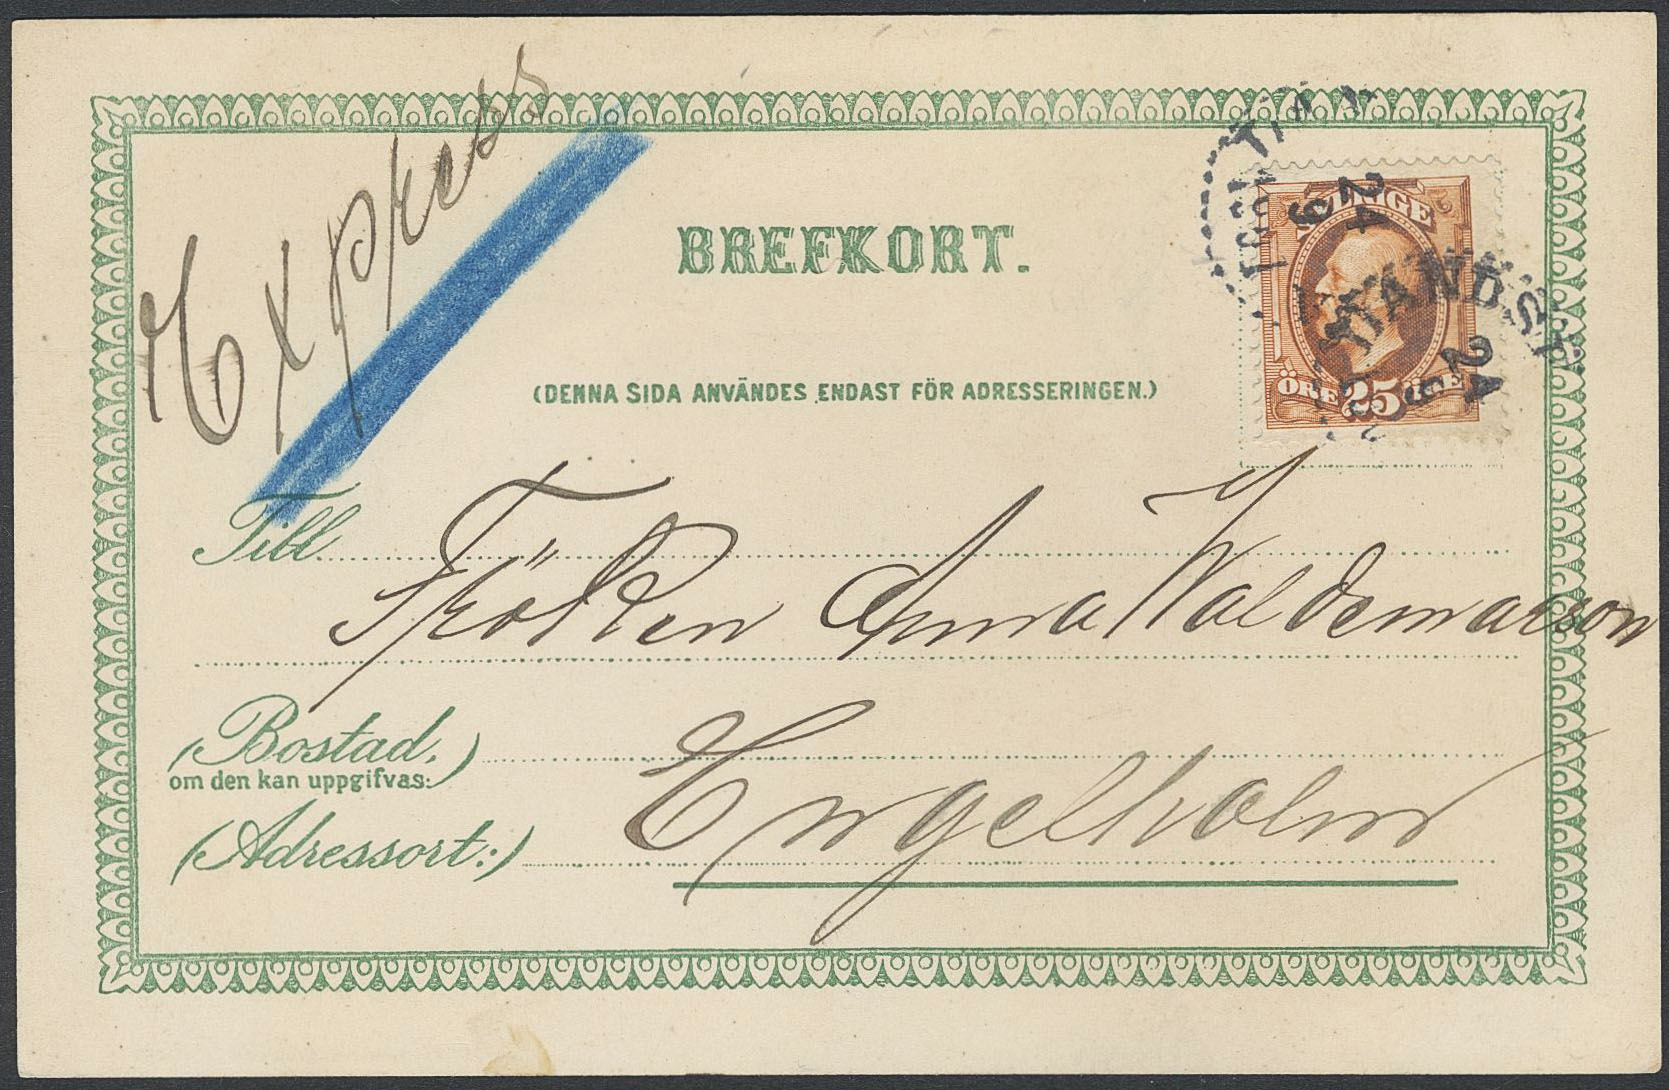 Express
BREFKORT.
(DENNA SIDA ANVÄNDES ENDAST FÖR ADRESSERINGEN.)
SVERIGE
ÖRE 25 ÖRE
24
9
24
9
Till
Fröken Anna Waldemarson
(Bostad.)
om den kan uppgifvas:
Engelholm
(Adressort:)